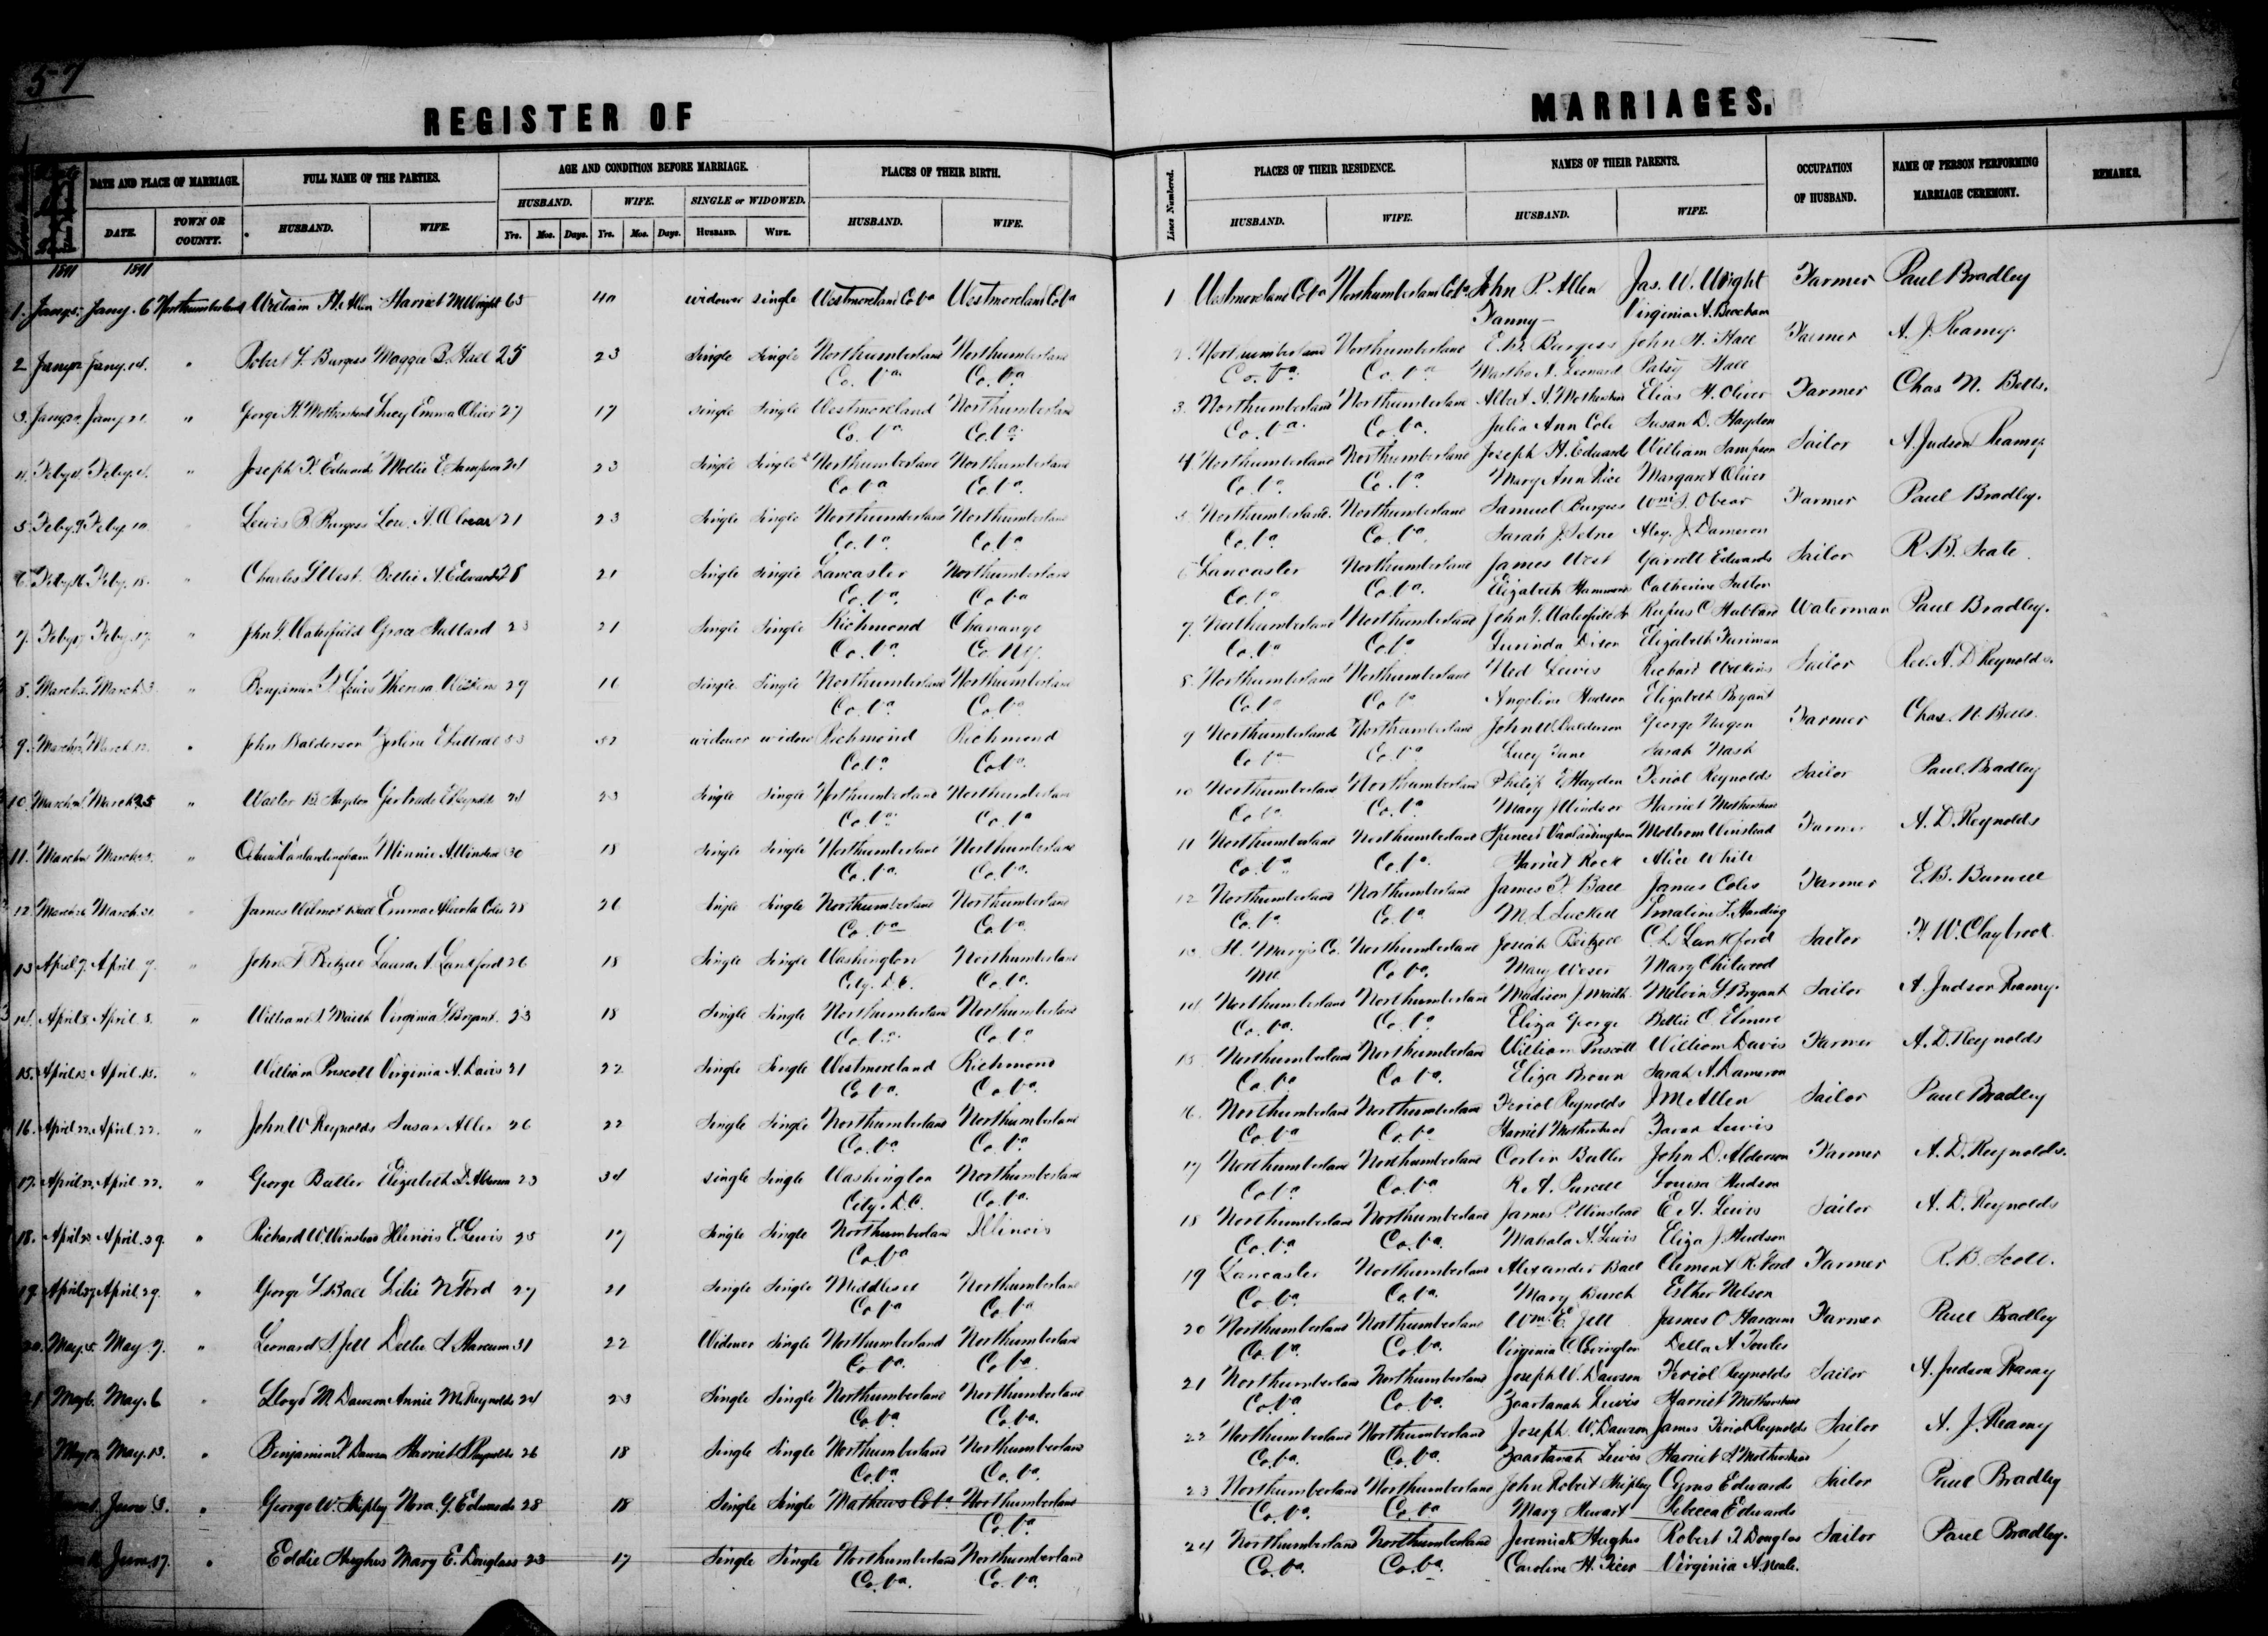 57
REGISTER OF MARRIAGES.
DATE AND PLACE OF MARRIAGE. FULL NAME OF THE PARTIES. AGE AND CONDITION BEFORE MARRIAGE. PLACES OF THEIR BIRTH. Lines Numbered. PLACES OF THEIR RESIDENCE. NAMES OF THEIR PARENTS. OCCUPATION OF HUSBAND. NAME OF PERSON PERFORMING MARRIAGE CEREMONY. REMARKS.
HUSBAND. WIFE. SINGLE or WIDOWED.
DATE. TOWN OR COUNTY. HUSBAND. WIFE. Yrs. Mos. Days. Yrs. Mos. Days. HUSBAND. WIFE. HUSBAND. WIFE. HUSBAND. WIFE. HUSBAND. WIFE.
1891 1891
1. Jany 5. Jany. 6 Northumberland William H. Allen Harriet M Wright 65 40 widower single Westmoreland Co Va Westmoreland Co Va 1 Westmoreland Co Va Northumberland Co Va John P. Allen Jas. W. Wright Farmer Paul Bradley
Fanny — Virginia A. Beacham
2 Jany Jany. 14. " Robert F. Burgess Maggie B. Hall 25 23 Single Single Northumberland Northumberland 2. Northumberland Northumberland E. Burgess John H. Hall Farmer A. J. Reamy.
Co. Va. Co. Va. Co. Va. Co. Va Martha A. Leonard Patsy Hall
3. Jany 20. Jany 21 " George H. Mothershead Lucy Emma Oliver 27 17 single Single Westmoreland Northumberland 3. Northumberland Northumberland Albert A. Mothershead Elias H. Oliver Farmer Chas N. Betts.
Co. Va. Co Va. Co. Va. Co. Va. Julia Ann Cole Susan D. Haydon
4. Feby 4. Feby. 4. " Joseph F. Edwards Mollie E. Sampson 24 23 Single Single Northumberland Northumberland 4. Northumberland Northumberland Joseph H. Edwards William Sampson Sailor A. Judson Reamy
Co Va Co. Va. Co. Va. Co. Va. Mary Ann Rice Margaret Oliver
5 Feby 9. Feby. 10 Lewis B. Burgess Lou. A. Obear 21 23 Single Single Northumberland Northumberland 5. Northumberland. Northumberland Samuel Burgess Wm S. Obear Farmer Paul Bradley.
Co. Va. Co. Va. Co. Va. Co. Va. Sarah J. Alex. J. Dameron
6. Feby 16. Feby. 18. " Charles L West. Bettie A. Edwards 28 21 Single Single Lancaster Northumberland 6 Lancaster Northumberland James West Garrett Edwards Sailor R. B.
Co. Va. Co Va Co. Va Co. Va. Elizabeth Hammond Catherine
7. Feby 17. Feby. 17. " John F. Waterfield Grace Hubbard 23 21 Single Single Richmond Chenango 7. Northumberland Northumberland John F. Waterfield Rufus C Hubbard Waterman Paul Bradley.
Co. Va. Co. NY. Co. Va Co Va Lucinda Dixon Elizabeth
8. March 2. March 3. " Benjamin F. Lewis Theresa Watkins 29 16 Single Single Northumberland Northumberland 8. Northumberland Northumberland Ned Lewis Richard Watkins Sailor Rev. A. D Reynolds.
Co. Va. Co. Va. Co Va Co Va Angelina Hudson Elizabeth Bryant
9. March March 12. " John Balderson 53 52 widower widow Richmond Richmond 9 Northumberland Northumberland John W. Balderson George Farmer Chas. N. Betts.
Co. Va. Co Va. Co. Va Co. Va Lucy Jane Sarah Nash
10. March March 25 " Walter B. Haydon Gertrude E Reynolds 24 23 Single Single Northumberland Northumberland 10 Northumberland Northumberland Philip E Haydon Feriol Reynolds Sailor Paul Bradley
Co. Va. Co. Va Co Va. Co. Va Mary J Windsor Harriet Mothershead
11. March March 25. " Vanlandingham Minnie A Winstead 30 18 Single Single Northumberland Northumberland 11 Northumberland Northumberland Spencer Vanlandingham Mottrom Winstead Farmer A. D. Reynolds
Co. Va. Co. Va. Co. Va Co. Va. Harriet Rock Alice White
12. March March 31. " James Wilmot Ball Emma Alverta Coles 28 26 Single Single Northumberland Northumberland 12 Northumberland Northumberland James F. Ball James Coles Farmer E. B. Burwell
Co. Va Co. Va. Co. Va. Co. Va. M. L. Luckett Emaline F. Harding
13 April 7. April 9. " John F Beitzell Laura A. Lankford 26 18 Single Single Washington Northumberland 13. St. Mary's Co. Northumberland Josiah Beitzell C. L. Lankford Sailor F. W. Claybrook
City. D. C. Co. Va. Md Co. Va. Mary Weser Mary Chilwood
14. April 8. April 8. " William J. Maith Virginia F Bryant. 23 18 Single Single Northumberland Northumberland 14 Northumberland Northumberland Madison J. Maith Melvin S. Bryant Sailor A. Judson Reamy.
Co. Va. Co. Va Co. Va. Co. Va Eliza George Bettie C. Elmore
15. April 13. April 15. " William Prescott Virginia A. Davis 21 22 Single Single Westmoreland Richmond 15 Northumberland Northumberland William Prescott William Davis Farmer A. D. Reynolds
Co. Va. Co. Va. Co. Va Co. Va. Eliza Brown Sarah A. Dameron
16. April 22. April. 22. " John W Reynolds Susan Allen 26 22 Single Single Northumberland Northumberland 16. Northumberland Northumberland Feriol Reynolds J M Allen Sailor Paul Bradley
Co. Va. Co. Va. Co. Va Co. Va Harriet Mothershead Lewis
17. April 22. April 22. " George Butler Elizabeth D. Alderson 23 34 single Single Washington Northumberland 17 Northumberland Northumberland Corbin Butler John D. Alderson Farmer A. D. Reynolds.
City. D. C. Co. Va. Co Va Co. Va. R. A. Purcell Louisa Hudson
18. April 28. April. 29. " Richard W. Winstead Illinois E. Lewis 25 17 Single Single Northumberland Illinois 18 Northumberland Northumberland James Winstead E. A. Lewis Sailor A. D. Reynolds
Co. Va Co. Va Co. Va. Mahala A. Lewis Eliza J. Hudson
19. April 27. April. 29. " George L. Ball Lelia N Ford 27 21 Single Single Middlesex Northumberland 19 Lancaster Northumberland Alexander Ball Clement R. Ford Farmer R. B. Scott.
Co Va Co. Va Co. Va. Co. Va. Mary Burch Esther Nelson
20. May 5. May 7. " Leonard S. Jett Della A Harcum 31 22 Widower Single Northumberland Northumberland 20 Northumberland Northumberland Wm. E Jett James O Harcum Farmer Paul Bradley
Co. Va. Co. Va. Co. Va. Co. Va. Virginia C Covington Della A. Towles
21 May 6. May. 6 " Lloyd M Dawson Annie M. Reynolds 24 23 Single Single Northumberland Northumberland 21 Northumberland Northumberland Joseph W. Dawson Feriol Reynolds Sailor A. Judson Reamy
Co. Va. Co. Va. Co. Va Co. Va. Zoartanah Lewis Harriet Mothershead
May 12. May. 13. " Benjamin F. Dawson Harriet S Reynolds 26 18 Single Single Northumberland Northumberland 22 Northumberland Northumberland Joseph. W. Dawson James Feriol Reynolds Sailor A. J. Reamy
Co. Va. Co. Va. Co. Va. Co. Va. Zoartanah Lewis Harriet S. Mothershead
June 3. " George W. Shipley Nora. G. Edwards 28 18 Single Single Mathews Co Va Northumberland 23 Northumberland Northumberland John Robert Shipley Cyrus Edwards Sailor Paul Bradley
Co. Va. Co. Va. Co. Va Mary Stewart Rebecca Edwards
June 17. " Eddie Hughes Mary E. Douglass 23 17 Single Single Northumberland Northumberland 24 Northumberland Northumberland Jeremiah Hughes Robert F. Douglas Sailor Paul Bradley.
Co. Va. Co. Va. Co. Va. Co. Va. Caroline H. Virginia A. Neale.